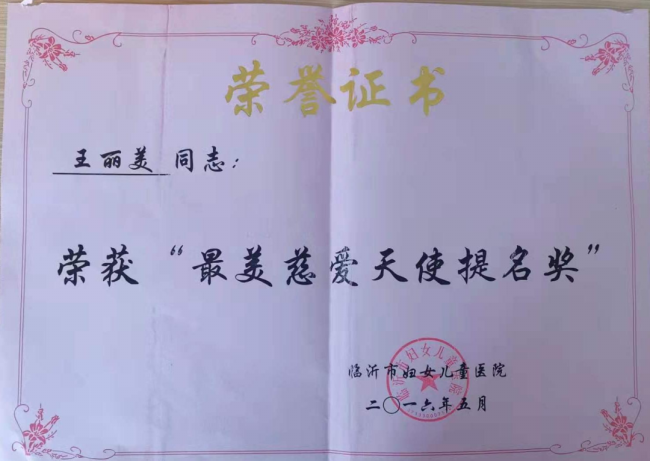 荣誉证书
王丽美 同志：
荣获“最美慈爱天使提名奖”
临沂市妇女儿童医院
二〇一六年五月